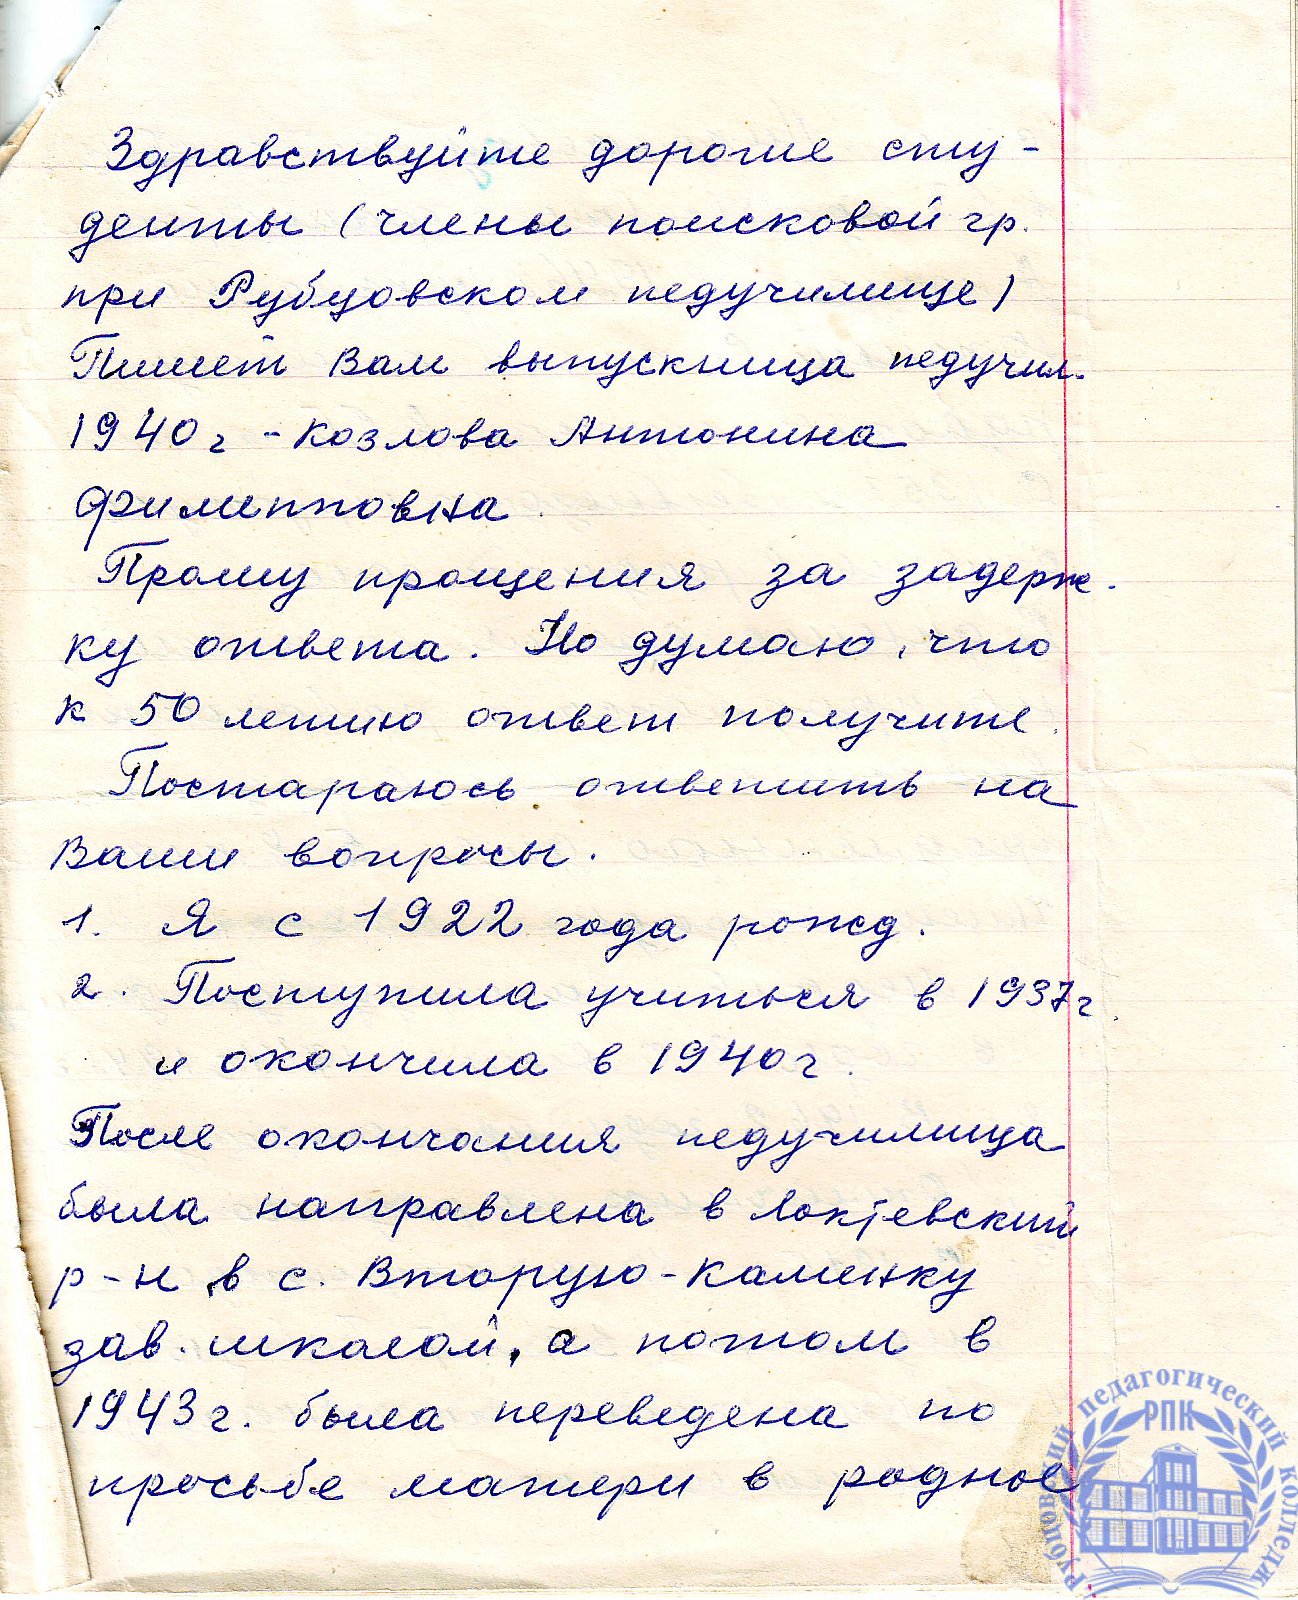 Здравствуйте дорогие сту-
денты (члены поисковой гр.
при Рубцовском педучилище)
Пишет Вам выпускница педучил.
1940г - Козлова Антонина
Филипповна.
Прошу прощения за задерж-
ку ответа. Но думаю, что
к 50 летию ответ получите.
Постараюсь ответить на
Ваши вопросы.
1. Я с 1922 года рожд.
2. Поступила учиться в 1937г.
и окончила в 1940г.
После окончания педучилища
была направлена в Локтевский
р-н в с. Вторую-Каменку
зав. школой, а потом в
1943г. была переведена по
просьбе матери в родное
Рубцовский педагогический колледж
РПК